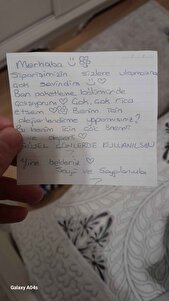 Merhaba
Siparişinizin sizlere ulaşmasına
çok sevindim
Ben paketleme bölümünde
çalışıyorum Çok, çok rica
etsem Benim için
değerlendirme yaparmısınız?
Bu benim için çok önemli
ve değerli
GÜZEL GÜNLERDE KULLANILSIN
Yine bekleriz
Sevgi ve Saygılarımla
Galaxy A04s